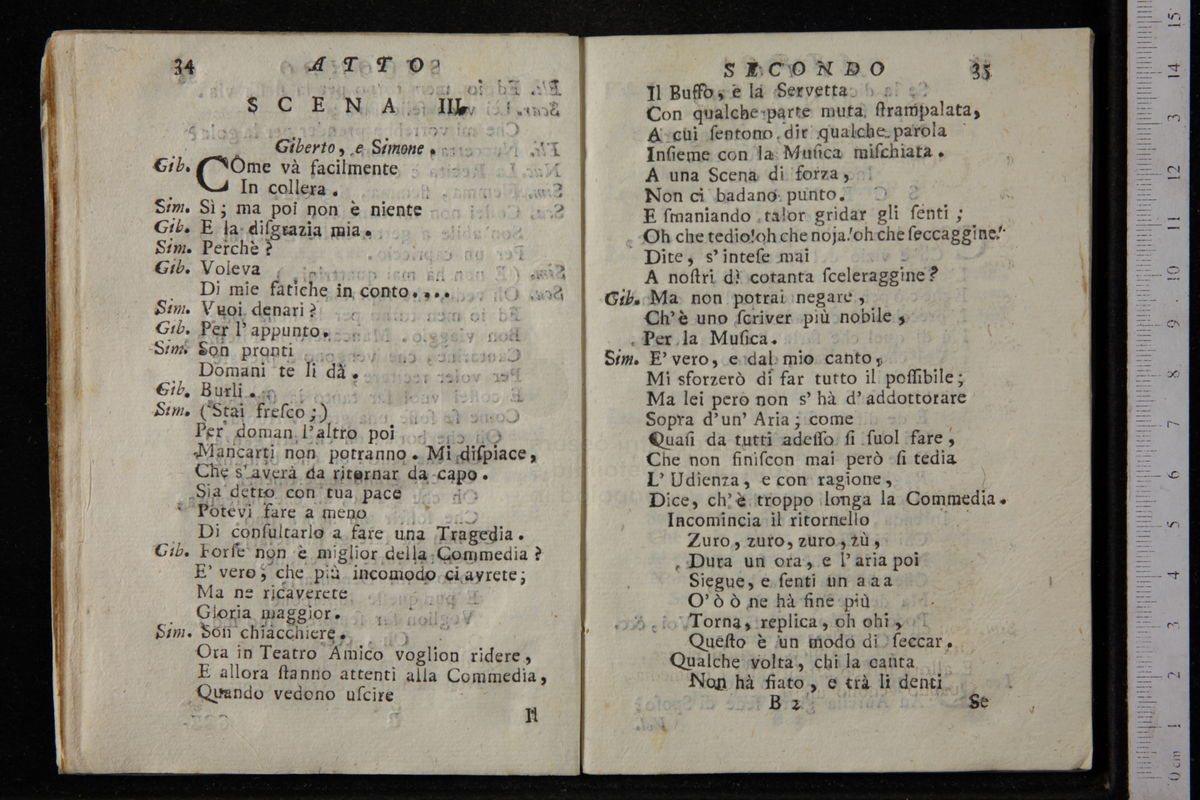 34 ATTO
SCENA III.
Giberto, e Simone.
Gib. COme và facilmente
In collera.
Sim. Sì; ma poi non è niente
Gib. E la diſgrazia mia.
Sim. Perchè?
Gib. Voleva
Di mie fatiche in conto....
Sim. Vuoi denari?
Gib. Per l'appunto.
Sim. Son pronti
Domani te li dà.
Gib. Burli.
Sim. (Stai freſco;)
Per doman l'altro poi
Mancarti non potranno. Mi diſpiace,
Che s'averà da ritornar da capo.
Sia detto con tua pace
Potevi fare a meno
Di conſultarlo a fare una Tragedia.
Gib. Forſe non è miglior della Commedia?
E' vero; che più incomodo ci avrete;
Ma ne ricaverete
Gloria maggior.
Sim. Son chiacchiere.
Ora in Teatro Amico voglion ridere,
E allora ſtanno attenti alla Commedia,
Quando vedono uſcire
Il
SECONDO 35
Il Buffo, e la Servetta
Con qualche parte muta ſtrampalata,
A cui ſentono dir qualche parola
Inſieme con la Muſica miſchiata.
A una Scena di forza,
Non ci badano punto.
E ſmaniando talor gridar gli ſenti;
Oh che tedio! oh che noja! oh che ſeccaggine!
Dite, s'inteſe mai
A noſtri dì cotanta ſceleraggine?
Gib. Ma non potrai negare,
Ch'è uno ſcriver più nobile,
Per la Muſica.
Sim. E' vero, e dal mio canto,
Mi sforzerò di far tutto il poſſibile;
Ma lei però non s'hà d'addottorare
Sopra d'un' Aria; come
Quaſi da tutti adeſſo ſi ſuol fare,
Che non finiſcon mai però ſi tedia
L'Udienza, e con ragione,
Dice, ch'è troppo longa la Commedia.
Incomincia il ritornello
Zuro, zuro, zuro, zù,
Dura un ora, e l'aria poi
Siegue, e ſenti un a a a
O' ò ò ne hà fine più
Torna, replica, oh ohi,
Queſto è un modo di ſeccar.
Qualche volta, chi la canta
Non hà fiato, e trà li denti
B 2 Se